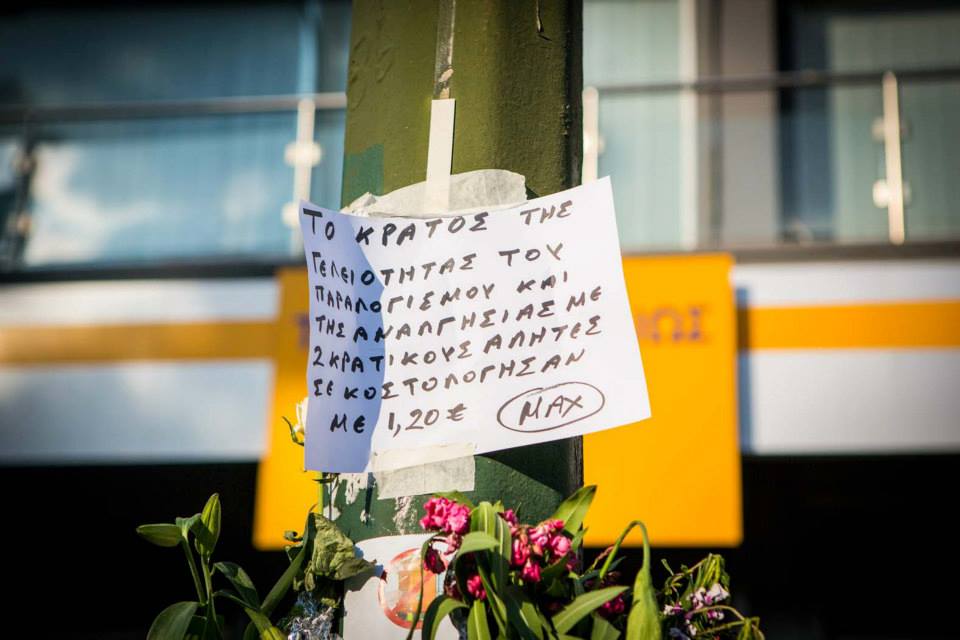 ΤΟ ΚΡΑΤΟΣ ΤΗΣ
ΓΕΛΕΙΟΤΗΤΑΣ ΤΟΥ
ΠΑΡΑΛΟΓΙΣΜΟΥ ΚΑΙ
ΤΗΣ ΑΝΑΛΓΗΣΙΑΣ ΜΕ
2 ΚΡΑΤΙΚΟΥΣ ΑΛΗΤΕΣ
ΣΕ ΚΟΣΤΟΛΟΓΗΣΑΝ
ΜΕ 1,20 € ΜΑΧ